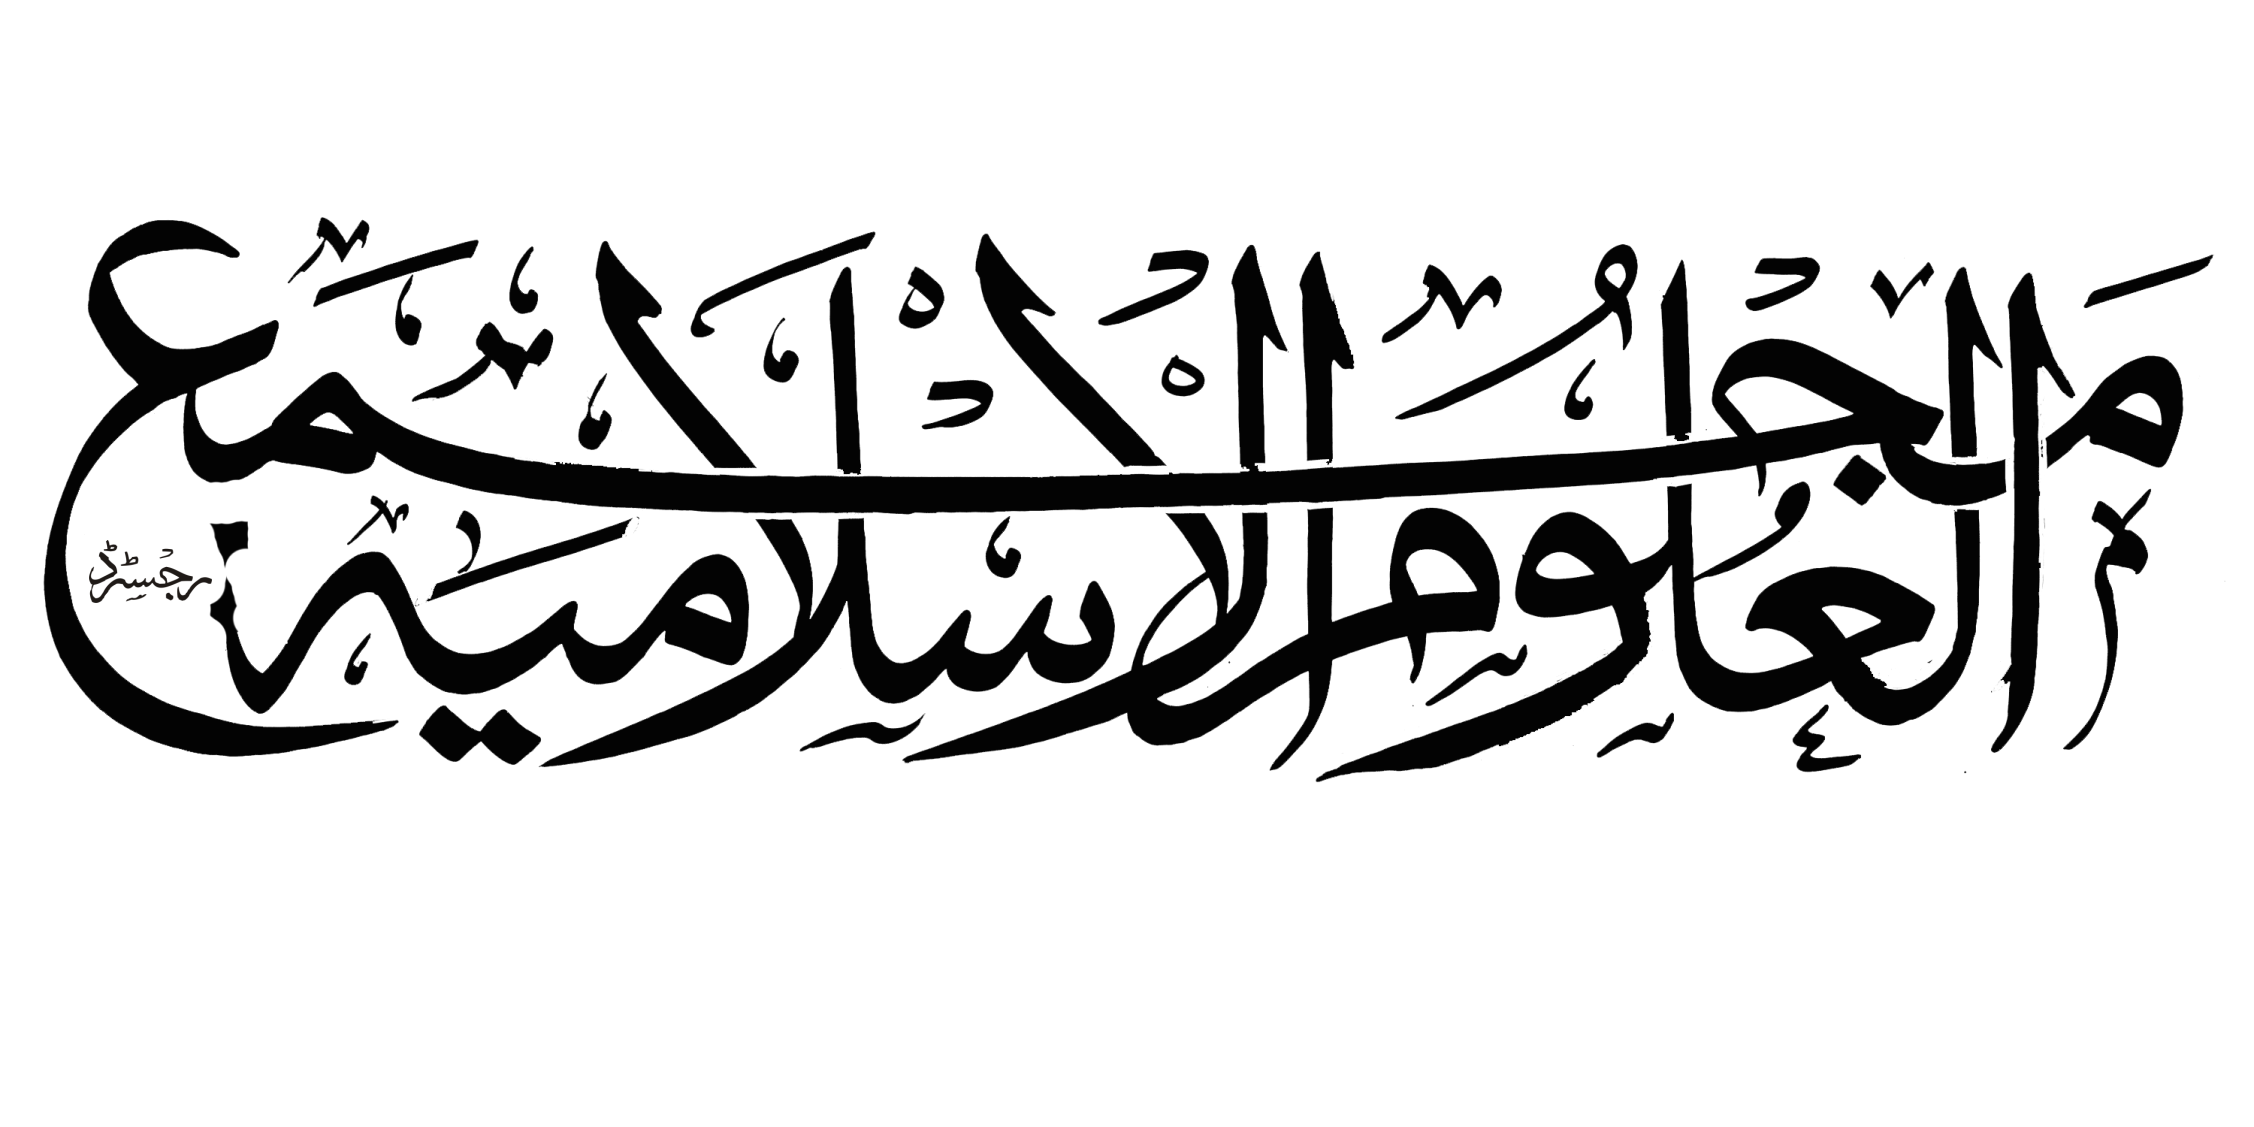 مجمع العلوم الاسلامية
رجسٹرڈ